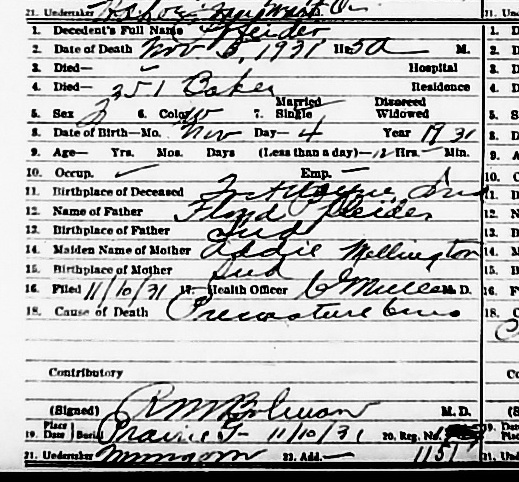 21. Undertaker
1. Decedent's Full Name Pleider
2. Date of Death Nov 5, 1931 Hr 5 a M.
3. Died— ✓ Hospital
4. Died— 351 Baker Residence
5. Sex 6. Color W 7. Married Single Divorced Widowed
8. Date of Birth—Mo. Nov Day— 4 Year 1931
9. Age— Yrs. Mos. Days (Less than a day)—12 Hrs.— Min.
10. Occup. ✓ Emp. —
11. Birthplace of Deceased Ft Wayne Ind
12. Name of Father Floyd Pleider
13. Birthplace of Father Ind
14. Maiden Name of Mother Addie Mellington
15. Birthplace of Mother Ind
16. Filed 11/10/31 17. Health Officer M. D.
18. Cause of Death Premature
Contributory
(Signed) M. D.
19. Place Date } Burial Prairie G— 11/10/31 20. Reg. No.
21. Undertaker 22. Add.— 1151